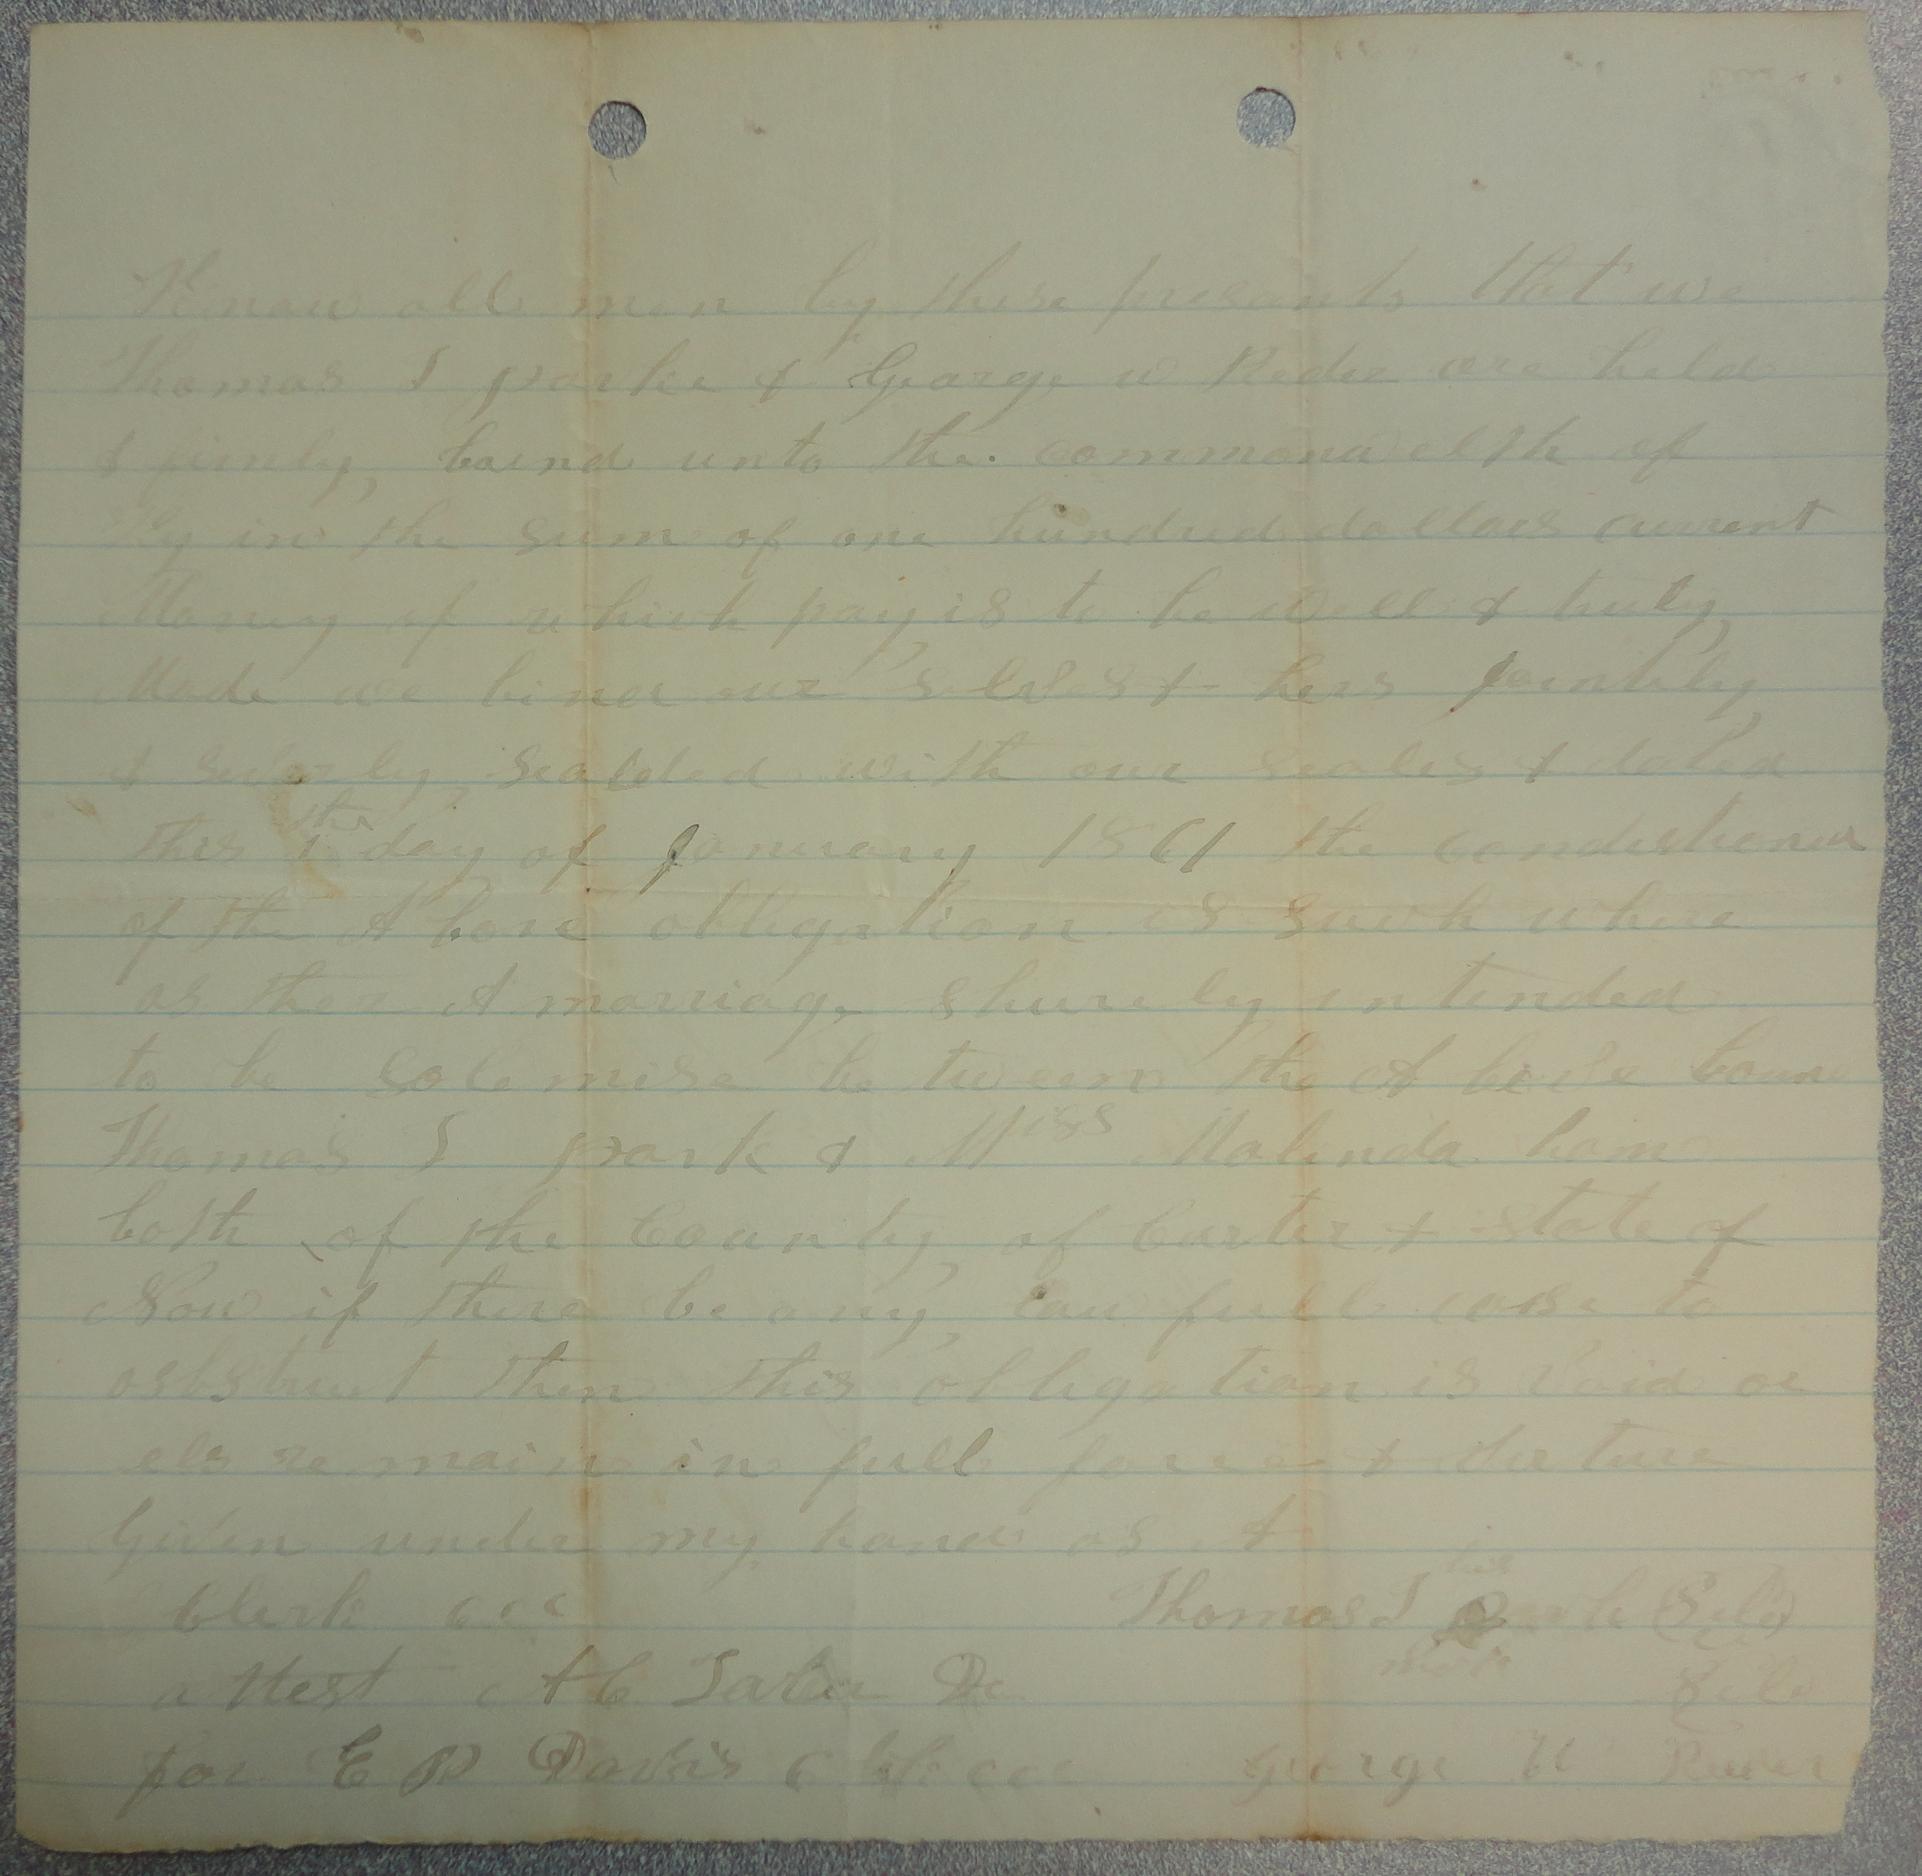 Know all men by these presants that we
Thomas J parke & George w Reder are held
& firmly bound unto the commonwelth of
Ky in the sum of one hundred dollars current
Money of which pay is to be well & truly
Made we bind our selves & hers jointly
& severly sealded with our seales & dated
this 1 the day of January 1861 the
of the A bove obligation is such where
as ther A marriage shurely intended
to be solemise be tween the A bove boun
Thomas J park & Miss Malinda ham
both of the County of Carter & state of
Now if there be any law full case to
then this obligation is void or
els re main in full force &
Given under my hand as A
Clerk ccc Thomas J his park Sele
mark
attest A C Tabor Dc Sele
for E P Davis clk ccc George W